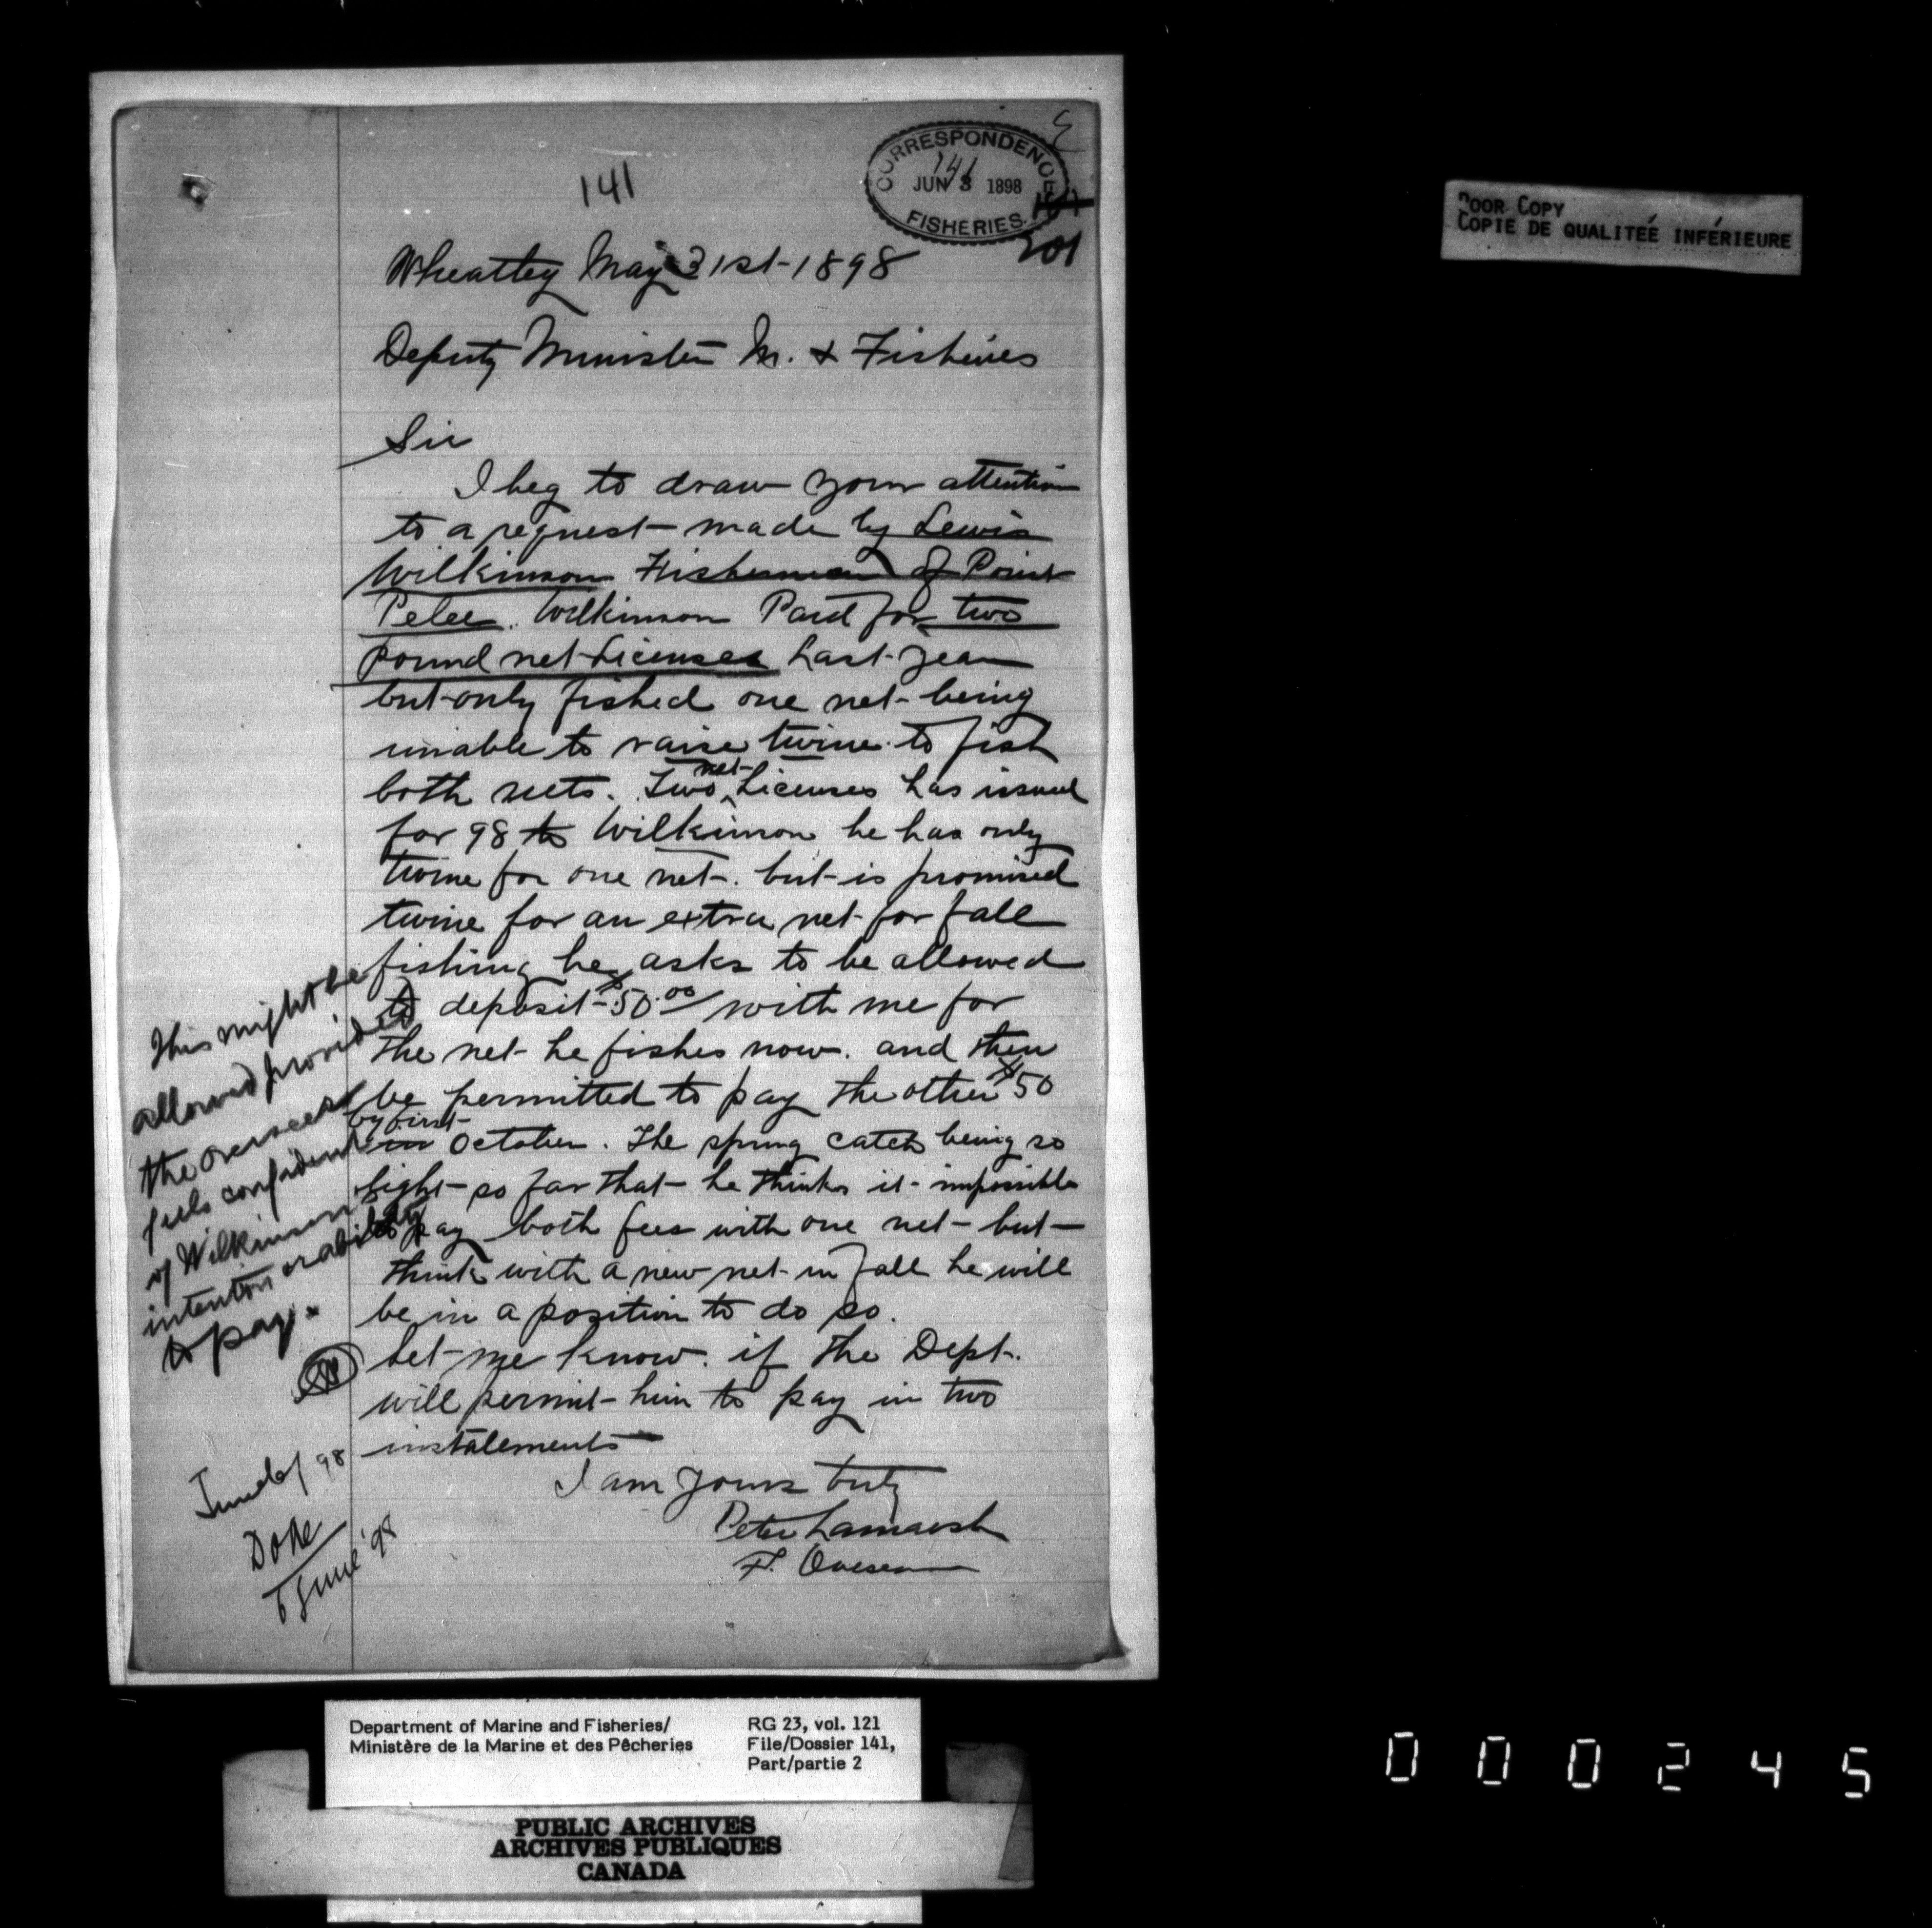 141
CORRESPONDENCE
141
JUN 3 1898
FISHERIES.
201
Wheatley May 31st - 1898
Deputy Minister M. & Fisheries
Sir
I beg to draw your attention
to a request - made by Lewis
Wilkinson Fisherman of Point
Pelee. Wilkinson Paid for two
pound net Licenses Last year
but only fished one net - being
unable to raise twine to fish
both nets. Two net Licenses has issued
for 98 to Wilkinson he has only
twine for one net - but is promised
twine for an extra net for fall
fishing he asks to be allowed
to deposit - $50.00 with me for
the net - he fishes now. and then
be permitted to pay the other $50
by first
in October. The spring catch being so
light - so far that - he thinks it - impossible
to pay both fees with one net - but -
think with a new net - in fall he will
be in a position to do so.
Let - me know. if the Dept.
will permit - him to pay in two
instalements
I am yours truly
Peter Lamarsh
F. Overseer
This might be
allowed provided
the overseer
feels confident
of Wilkinson's
intention or ability
to pay.
June 6/98
Done
6 June '98
POOR COPY
COPIE DE QUALITÉE INFÉRIEURE
Department of Marine and Fisheries/
Ministère de la Marine et des Pêcheries
RG 23, vol. 121
File/Dossier 141,
Part/partie 2
PUBLIC ARCHIVES
ARCHIVES PUBLIQUES
CANADA
000245